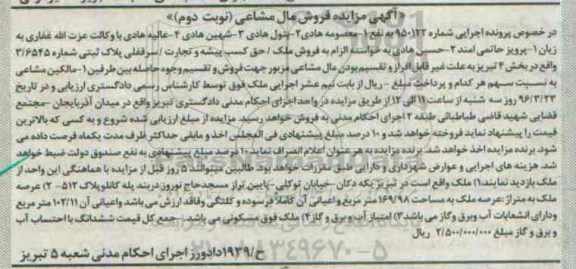 «آگهی مزایده فروش مال مشاعی (نوبت دوم)»
در خصوص پرونده اجرایی شماره ۹۵۰۱۲۲ به نفع ۱-معصومه هادی۲-بتول هادی ۳-شهین هادی ۴-عالیه هادی با وکالت عزت الله غفاری به
زیان ۱-پرویز حاتمی امند ۲-حسین هادی به خواسته الزام به فروش ملک / حق کسب پیشه و تجارت /سرقفلی پلاک ثبتی شماره ۳/۶۵۴۵
واقع در بخش ۴ تبریز به علت غیر قابل افراز و تقسیم بودن مال مشاعی مزبور جهت فروش و تقسیم وجوه حاصله بین طرفین ۱-مالکین مشاعی
به نسبت سهم هر کدام و پرداخت مبلغ - ریال از بابت نیم عشر اجرایی ملک فوق توسط کارشناس رسمی دادگستری ارزیابی و در تاریخ
۹۶/۳/۲۳ روز سه شنبه از ساعت ۱۱ الی ۱۲ از طریق مزایده در واحد اجرای احکام مدنی دادگستری تبریز واقع در میدان آذربایجان -مجتمع
قضایی شهید قاضی طباطبائی طبقه ۲ اجرای احکام مدنی به فروش خواهد رسید. مزایده از مبلغ ارزیابی شده شروع و به کسی که بالاترین
قیمت را پیشنهاد نماید فروخته خواهد شد و ۱۰ درصد مبلغ پیشنهادی فی المجلس اخذ و مابقی حداکثر ظرف مدت یکماه فرصت داده می
شود. برنده مزایده اخذ خواهد شد. برنده مزایده به هر عنوان اعلام انصراف نماید۱۰ درصد مبلغ پیشنهادی به نفع صندوق دولت ضبط خواهد
شد. هزینه های اجرایی و عوارض شهرداری و دارایی طبق مقررات خواهد بود. طالبین میتوانند ۵ روز قبل از مزایده با هماهنگی این واحد از
ملک بازدید نمایند.۱) ملک واقع است در تبریز یکه دکان خیابان توکلی-پایین تراز مسجدحاج نوروز دربند پله کانلوپلاک ۵۱۲- ۲) عرصه
ملک به متراژ:عرصه ملک به مساحت ۱۶۹/۹۸ متر مربع و اعیانی آن کاملا فرسوده و کلنگی وفاقد ارزش می باشد واعیانی آن ۱۰۲/۱۱ متر مربع
ودارای انشعابات آب وبرق وگاز می باشد ۳) امتیاز آب و برق و گاز۴) ملک فوق مسکونی می باشد . جمع کل قیمت ششدانگ با احتساب آب
و برق و گاز مبلغ ۲/۵۰۰/۰۰۰/۰۰۰ ریال
ح/۱۹۳۹دادورز اجرای احکام مدنی شعبه ۵ تبریز